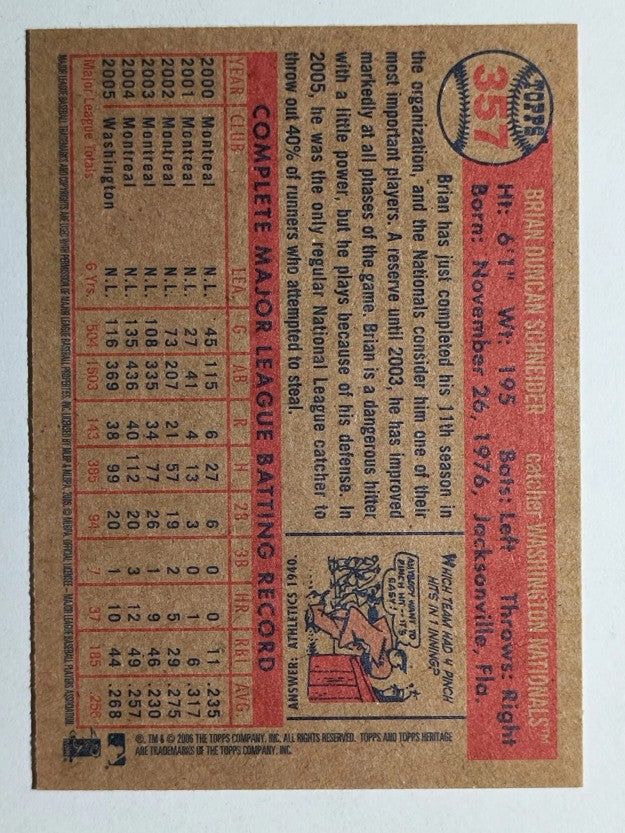 TOPPS
357
BRIAN DUNCAN SCHNEIDER catcher WASHINGTON NATIONALS™
Ht: 6'1" Wt: 195 Bats: Left Throws: Right
Born: November 26, 1976, Jacksonville, Fla.
Brian has just completed his 11th season in
the organization, and the Nationals consider him one of their
most important players. A reserve until 2003, he has improved
markedly at all phases of the game. Brian is a dangerous hitter
with a little power, but he plays because of his defense. In
2005, he was the only regular National League catcher to
throw out 40% of runners who attempted to steal.
WHICH TEAM HAD 4 PINCH
HITS IN 1 INNING?
ANYBODY WANT TO
PINCH HIT - IT'S
EASY!
ANSWER: ATHLETICS 1940.
COMPLETE MAJOR LEAGUE BATTING RECORD
YEAR CLUB LEA. G AB R H 2B 3B HR RBI AVG.
2000 Montreal N.L. 45 115 6 27 6 0 0 11 .235
2001 Montreal N.L. 27 41 4 13 3 0 1 6 .317
2002 Montreal N.L. 73 207 21 57 19 2 5 29 .275
2003 Montreal N.L. 108 335 34 77 26 1 9 46 .230
2004 Montreal N.L. 135 436 40 112 20 3 12 49 .257
2005 Washington N.L. 116 369 38 99 20 1 10 44 .268
Major League Totals 6 Yrs. 504 1503 143 385 94 7 37 185 .256
®, TM & © 2006 THE TOPPS COMPANY, INC. ALL RIGHTS RESERVED. TOPPS AND TOPPS HERITAGE
ARE TRADEMARKS OF THE TOPPS COMPANY, INC.
MAJOR LEAGUE BASEBALL TRADEMARKS AND COPYRIGHTS ARE USED WITH PERMISSION OF MAJOR LEAGUE BASEBALL PROPERTIES, INC. © MLBPA OFFICIAL LICENSEE - MAJOR LEAGUE BASEBALL PLAYERS ASSOCIATION